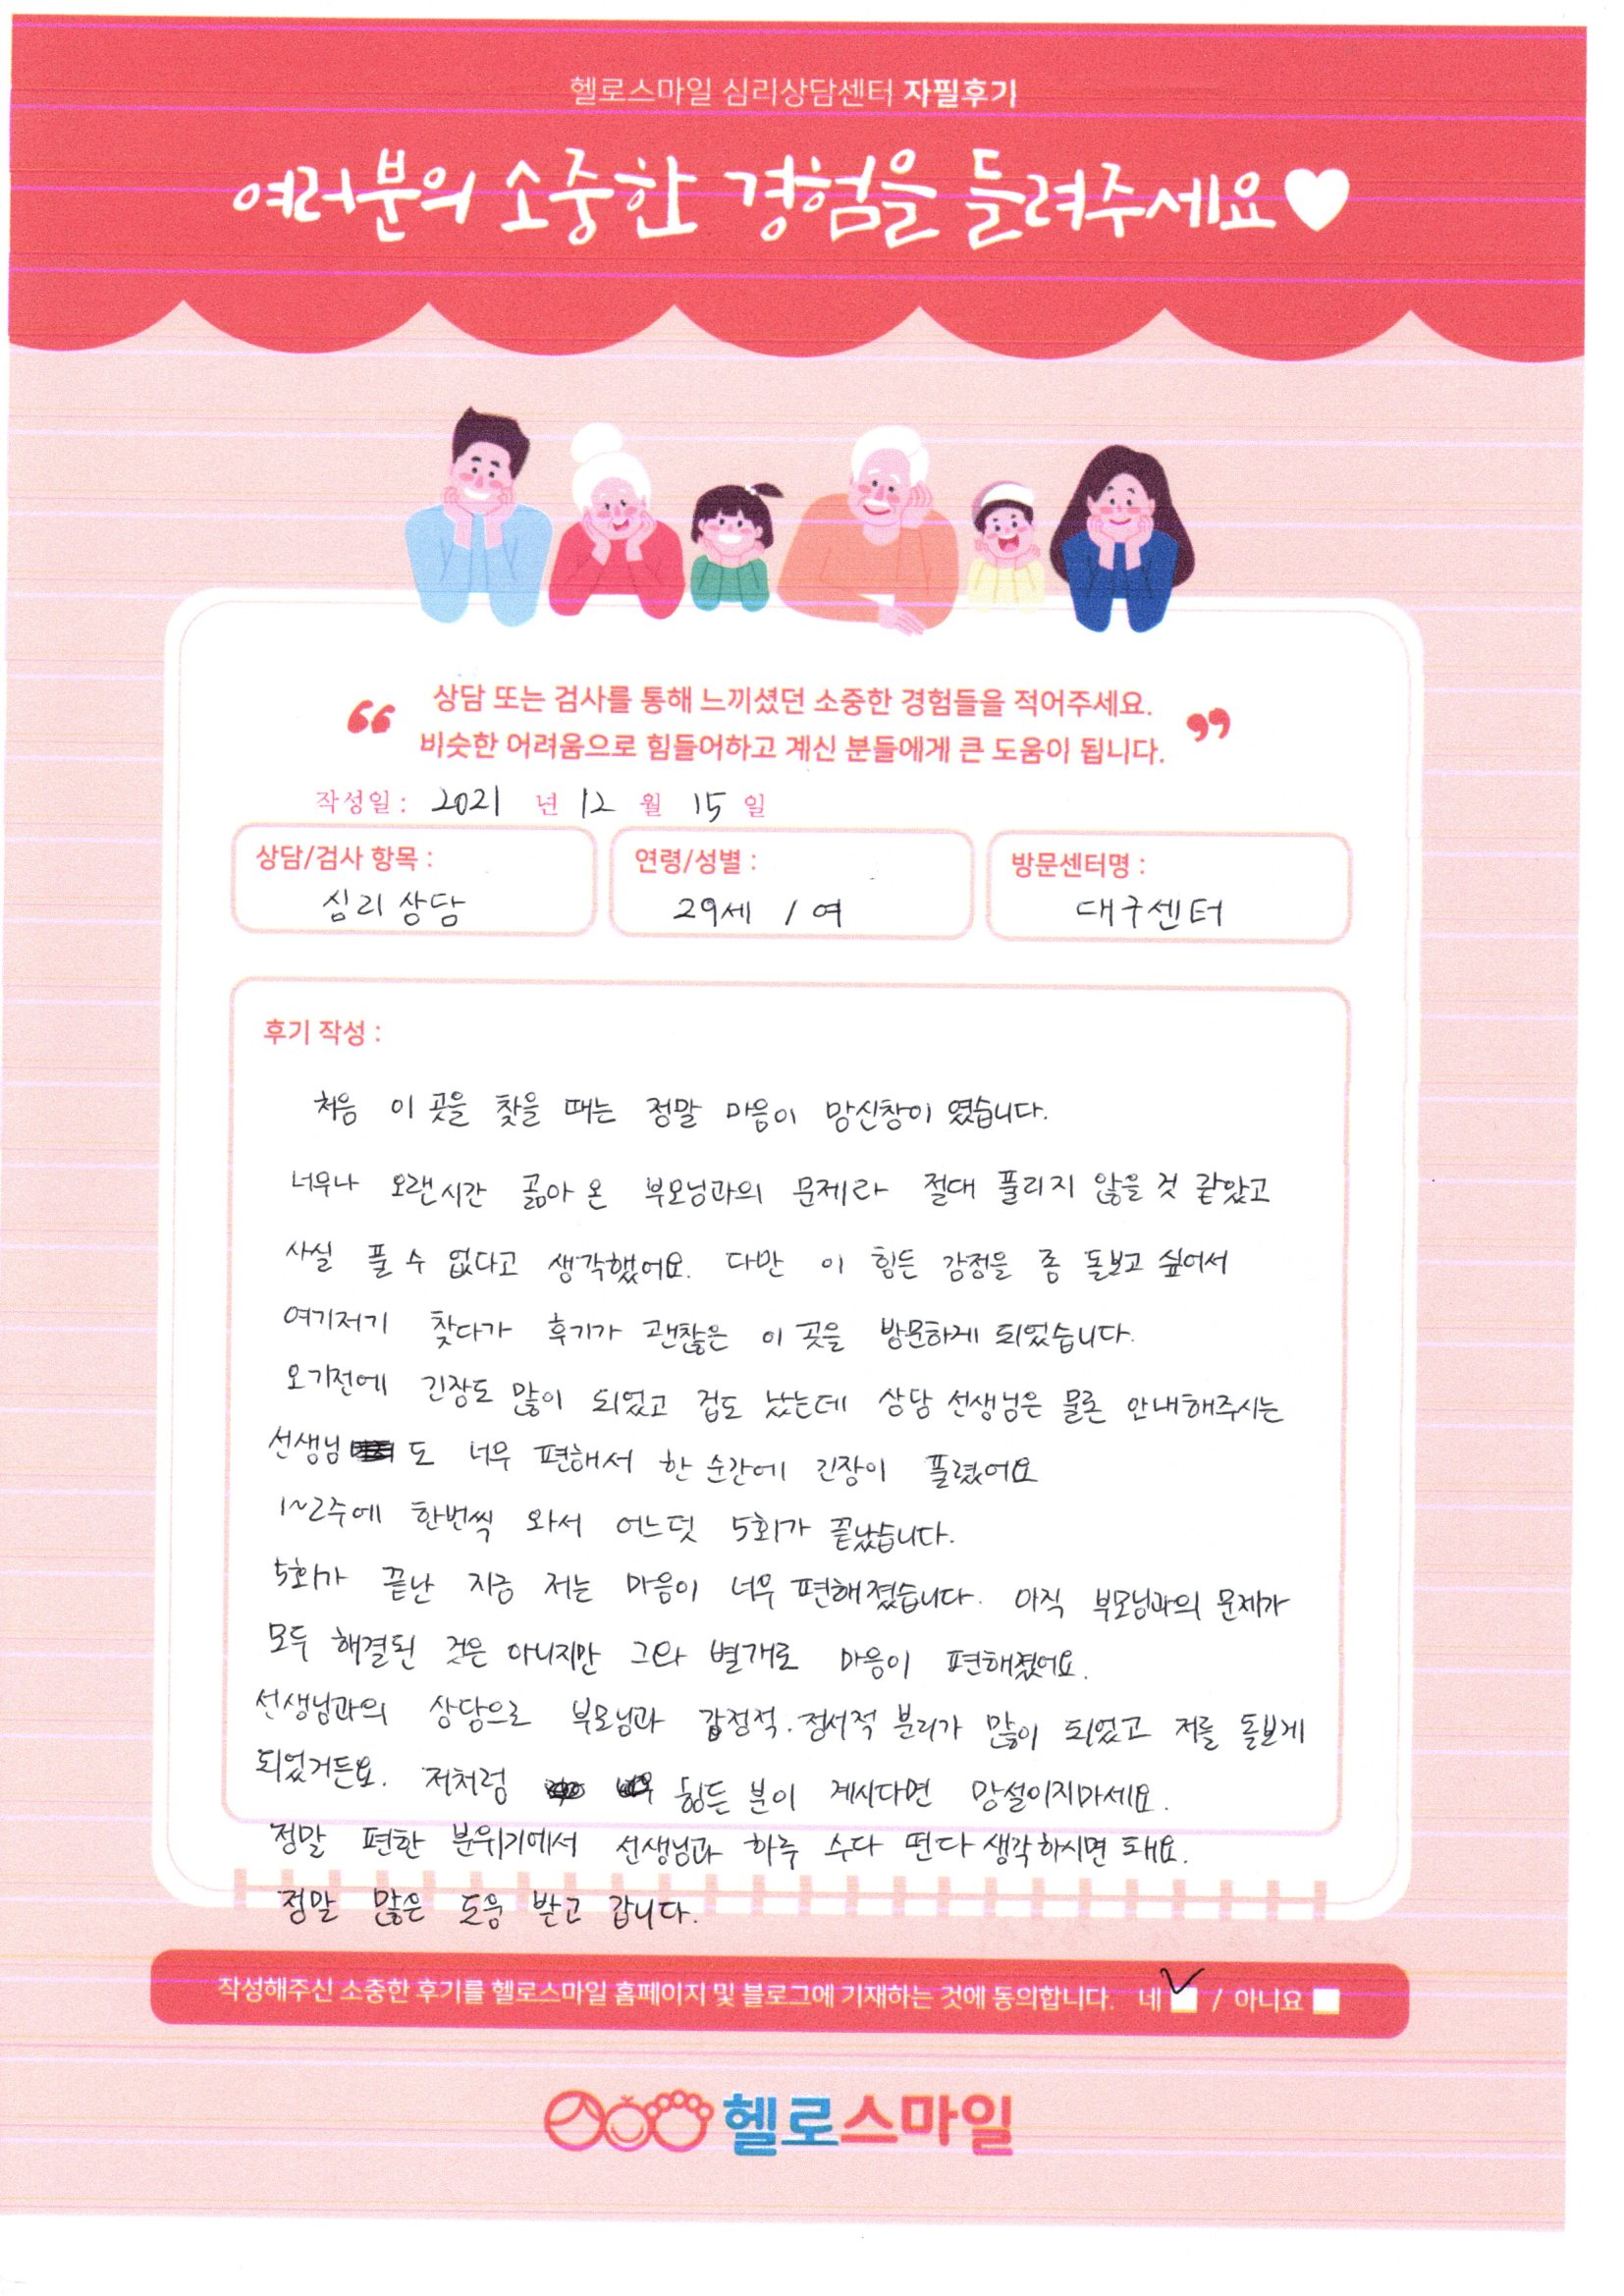 헬로스마일 심리상담센터 자필후기
여러분의 소중한 경험을 들려주세요♥
“ 상담 또는 검사를 통해 느끼셨던 소중한 경험들을 적어주세요. ”
비슷한 어려움으로 힘들어하고 계신 분들에게 큰 도움이 됩니다.
작성일 : 2021 년 12 월 15 일
상담/검사 항목 :
심리상담
연령/성별 :
29세 / 여
방문센터명 :
대구센터
후기 작성 :
처음 이 곳을 찾을 때는 정말 마음이 망신창이 였습니다.
너무나 오랜시간 곪아 온 부모님과의 문제라 절대 풀리지 않을 것 같았고
사실 풀 수 없다고 생각했어요. 다만 이 힘든 감정을 좀 돌보고 싶어서
여기저기 찾다가 후기가 괜찮은 이 곳을 방문하게 되었습니다.
오기전에 긴장도 많이 되었고 겁도 났는데 상담 선생님은 물론 안내해주시는
선생님 도 너무 편해서 한 순간에 긴장이 풀렸어요
1~2주에 한번씩 와서 어느덧 5회가 끝났습니다.
5회가 끝난 지금 저는 마음이 너무 편해졌습니다. 아직 부모님과의 문제가
모두 해결된 것은 아니지만 그와 별개로 마음이 편해졌어요.
선생님과의 상담으로 부모님과 감정적·정서적 분리가 많이 되었고 저를 돌보게
되었거든요. 저처럼 힘든 분이 계시다면 망설이지마세요.
정말 편한 분위기에서 선생님과 하루 수다 떤다 생각하시면 돼요.
정말 많은 도움 받고 갑니다.
작성해주신 소중한 후기를 헬로스마일 홈페이지 및 블로그에 기재하는 것에 동의합니다. 네 ☑ / 아니요 ☐
헬로스마일